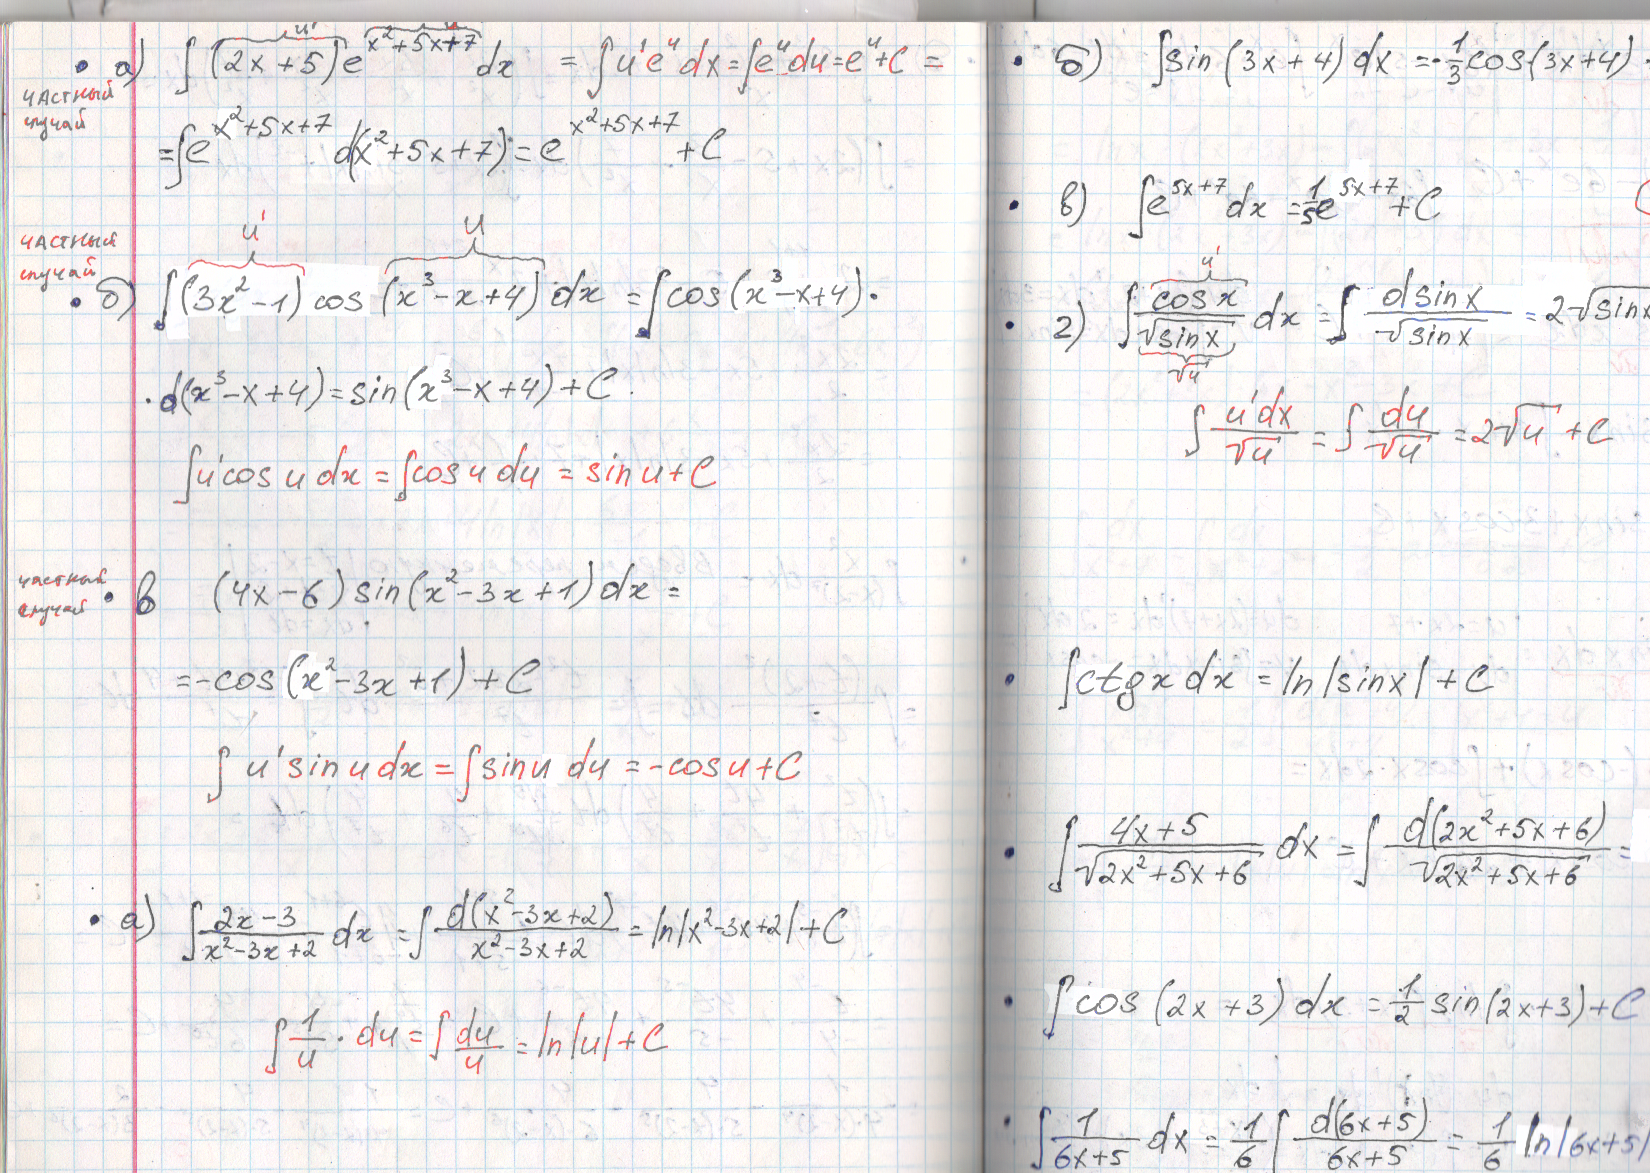 а) ∫(2x+5)e^{x²+5x+7}dx = ∫u'e^u dx = ∫e^u du = e^u + C =
u'
частный
случай
= ∫e^{x²+5x+7} d(x²+5x+7) = e^{x²+5x+7} + C
частный
случай
u' u
б) ∫(3x²-1) cos (x³-x+4) dx = ∫cos(x³-x+4)·
·d(x³-x+4) = sin(x³-x+4) + C.
∫u'cos u dx = ∫cos u du = sin u + C
частный
случай
в (4x-6) sin(x²-3x+1) dx =
= -cos(x²-3x+1) + C
∫u' sin u dx = ∫sin u du = -cos u + C
а) ∫\frac{2x-3}{x²-3x+2} dx = ∫\frac{d(x²-3x+2)}{x²-3x+2} = ln|x²-3x+2| + C
∫\frac{1}{u} · du = ∫\frac{du}{u} = ln|u| + C
б) ∫sin (3x+4) dx = -\frac{1}{3}cos(3x+4)
в) ∫e^{5x+7} dx = \frac{1}{5}e^{5x+7} + C
u'
г) ∫\frac{cos x}{√sin x} dx = ∫\frac{d sin x}{√sin x} = 2√sin x
√u
∫\frac{u'dx}{√u} = ∫\frac{du}{√u} = 2√u + C
∫ctg x dx = ln|sin x| + C
∫\frac{4x+5}{√2x²+5x+6} dx = ∫\frac{d(2x²+5x+6)}{√2x²+5x+6} =
∫cos (2x+3) dx = \frac{1}{2} sin(2x+3) + C
∫\frac{1}{6x+5} dx = \frac{1}{6} ∫\frac{d(6x+5)}{6x+5} = \frac{1}{6} ln|6x+5|